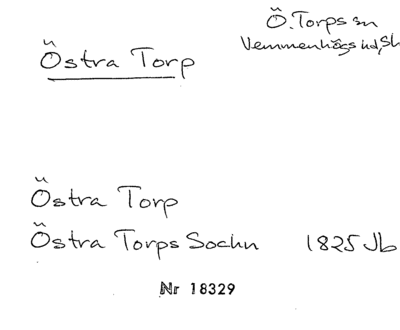 Ö. Torps sn
Östra Torp
Vemmenhögs hd, Sk
Östra Torp
Östra Torps Sochn 1825 Jb
Nr 18329